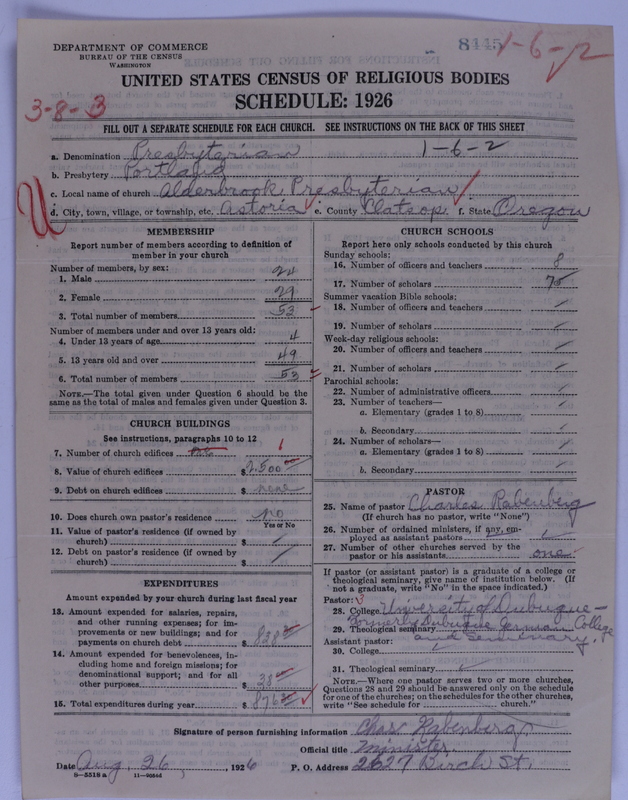 DEPARTMENT OF COMMERCE
BUREAU OF THE CENSUS
WASHINGTON
8115
1-6-2
UNITED STATES CENSUS OF RELIGIOUS BODIES
SCHEDULE: 1926
3-8-3
FILL OUT A SEPARATE SCHEDULE FOR EACH CHURCH. SEE INSTRUCTIONS ON THE BACK OF THIS SHEET
a. Denomination Presbyterian 1-6-2
b. Presbytery Portland
c. Local name of church Alderbrook Presbyterian
d. City, town, village, or township, etc. Astoria e. County Clatsop f. State Oregon
MEMBERSHIP
Report number of members according to definition of
member in your church
Number of members, by sex:
1. Male 24
2. Female 29
3. Total number of members 53
Number of members under and over 13 years old:
4. Under 13 years of age 4
5. 13 years old and over 49
6. Total number of members 53
NOTE.—The total given under Question 6 should be
same as the total of males and females given under Question 3.
CHURCH BUILDINGS
See instructions, paragraphs 10 to 12
7. Number of church edifices 1
8. Value of church edifices $ 2500
9. Debt on church edifices $ none
10. Does church own pastor's residence no
Yes or No
11. Value of pastor's residence (if owned by
church) $
12. Debt on pastor's residence (if owned by
church) $
EXPENDITURES
Amount expended by your church during last fiscal year
13. Amount expended for salaries, repairs,
and other running expenses; for im-
provements or new buildings; and for
payments on church debt $ 838
14. Amount expended for benevolences, in-
cluding home and foreign missions; for
denominational support; and for all
other purposes $ 38
15. Total expenditures during year $ 876
CHURCH SCHOOLS
Report here only schools conducted by this church
Sunday schools:
16. Number of officers and teachers 8
17. Number of scholars 75
Summer vacation Bible schools:
18. Number of officers and teachers
19. Number of scholars
Week-day religious schools:
20. Number of officers and teachers
21. Number of scholars
Parochial schools:
22. Number of administrative officers
23. Number of teachers—
a. Elementary (grades 1 to 8)
b. Secondary
24. Number of scholars—
a. Elementary (grades 1 to 8)
b. Secondary
PASTOR
25. Name of pastor Charles Rabenberg
(If church has no pastor, write "None")
26. Number of ordained ministers, if any, em-
ployed as assistant pastors
27. Number of other churches served by the
pastor or his assistants one
If pastor (or assistant pastor) is a graduate of a college or
theological seminary, give name of institution below. (If
not a graduate, write "No" in the space indicated.)
Pastor: 3
28. College University of Dubuque—
formerly Dubuque German College
29. Theological seminary and Seminary.
Assistant pastor:
30. College
31. Theological seminary
NOTE.—Where one pastor serves two or more churches,
Questions 28 and 29 should be answered only on the schedule
for one of the churches; on the schedules for the other churches,
write "See schedule for ........ church."
Signature of person furnishing information Chas. Rabenberg
Official title minister
Date Aug. 26, 1926 P. O. Address 2627 Birch St.
8—5518 a 11—9064d